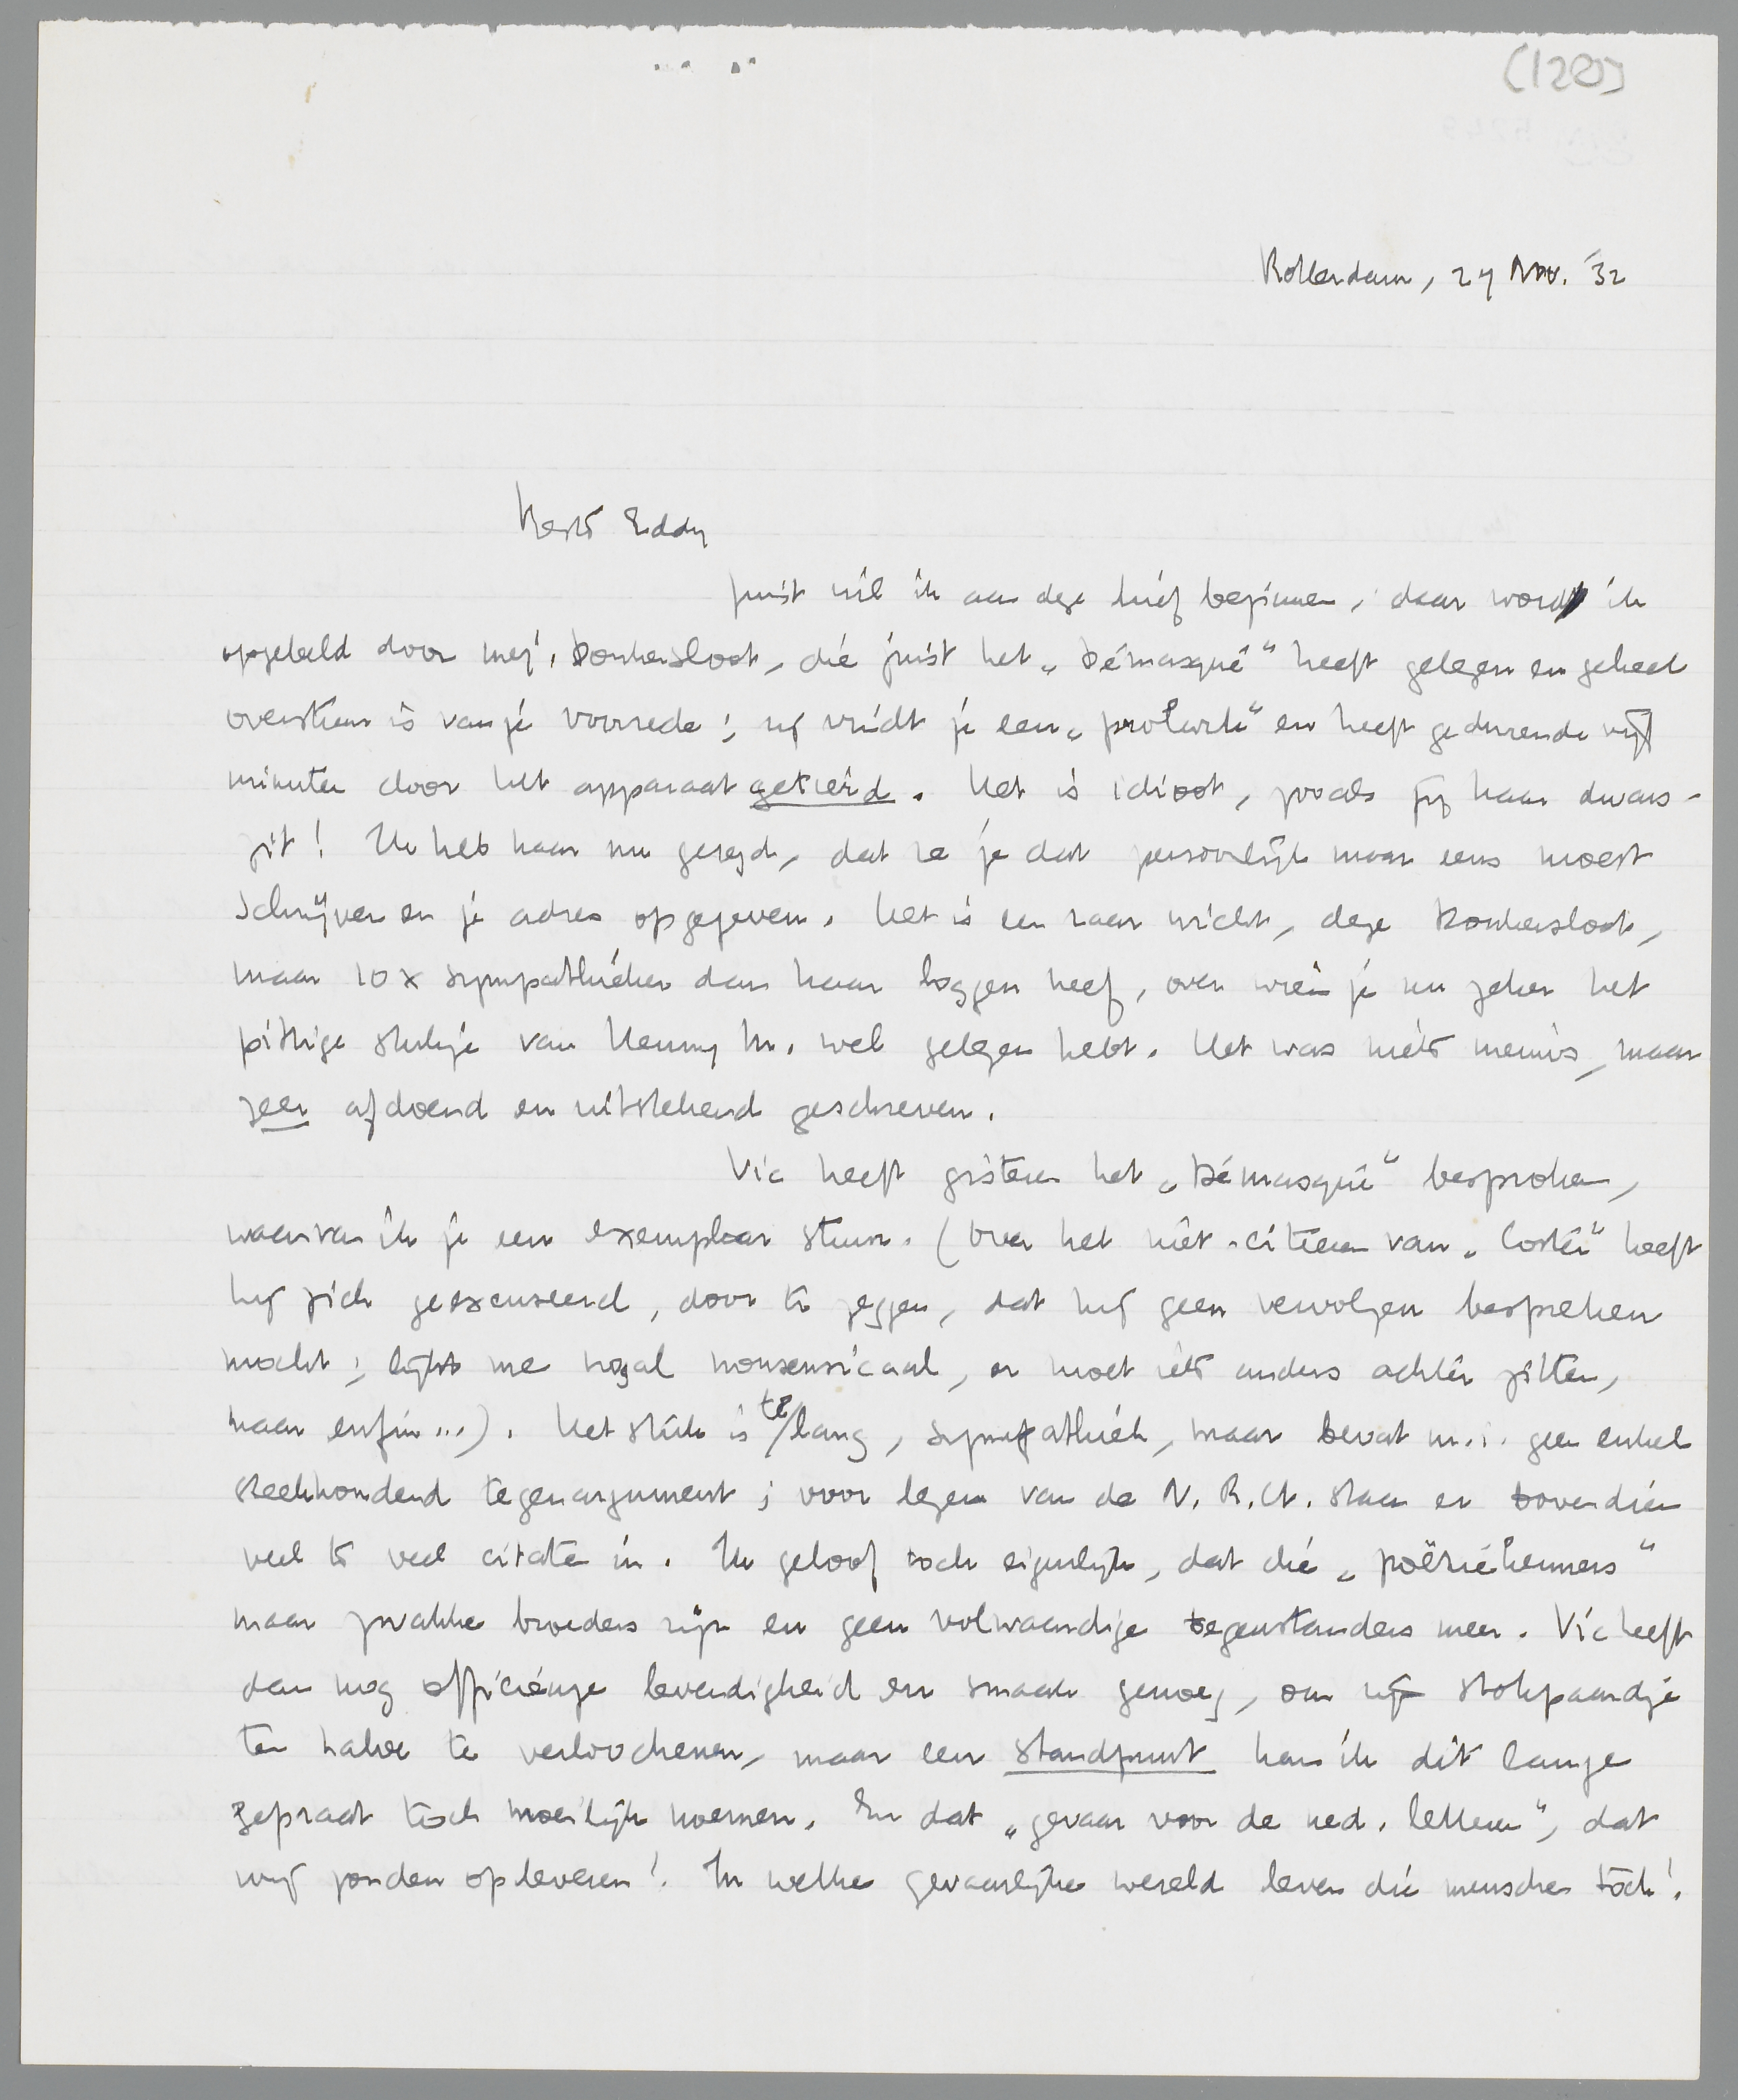 (120)
Rotterdam, 27 Nov. '32
Beste Eddy
Juist wil ik aan deze brief beginnen, daar word ik
opgebeld door mej. Donkersloot, die juist het „Démasqué" heeft gelezen en geheel
overstuur is van je voorrede; zij vindt je een „proleet" en heeft gedurende vijf
minuten door het apparaat getierd. Het is idioot, zooals jij haar dwars-
zit! Ik heb haar nu gezegd, dat ze je dat persoonlijk maar eens moest
schrijven en je adres opgegeven. Het is een raar wicht, deze Donkersloot,
maar 10 x sympathieker dan haar loggen neef, over wien je nu zeker het
pittige stukje van Henny M. wel gelezen hebt. Het was niets nieuws, maar
zeer afdoend en uitstekend geschreven.
Vic heeft gisteren het „Démasqué" besproken,
waarvan ik je een exemplaar stuur. (Over het niet-citeeren van „Coster" heeft
hij zich geexcuseerd, door te zeggen, dat hij geen vervolgen bespreken
mocht; lijkt me nogal nonsensicaal, er moet iets anders achter zitten,
maar enfin...). Het stuk is te lang, sympathiek, maar bevat m.i. geen enkel
steekhoudend tegenargument; voor lezers van de N.R.Ct. staan er bovendien
veel te veel citaten in. Ik geloof toch eigenlijk, dat die „poëziekenners"
maar zwakke broeders zijn en geen volwaardige tegenstanders meer. Vic heeft
dan nog officieuze levendigheid en smaak genoeg, om zijn stokpaardje
ten halve te verloochenen, maar een standpunt kan ik dit lange
gepraat toch moeilijk noemen. En dat „gevaar voor de ned. letteren", dat
wij zouden opleveren! In welke gevaarlijke wereld leven die menschen toch!